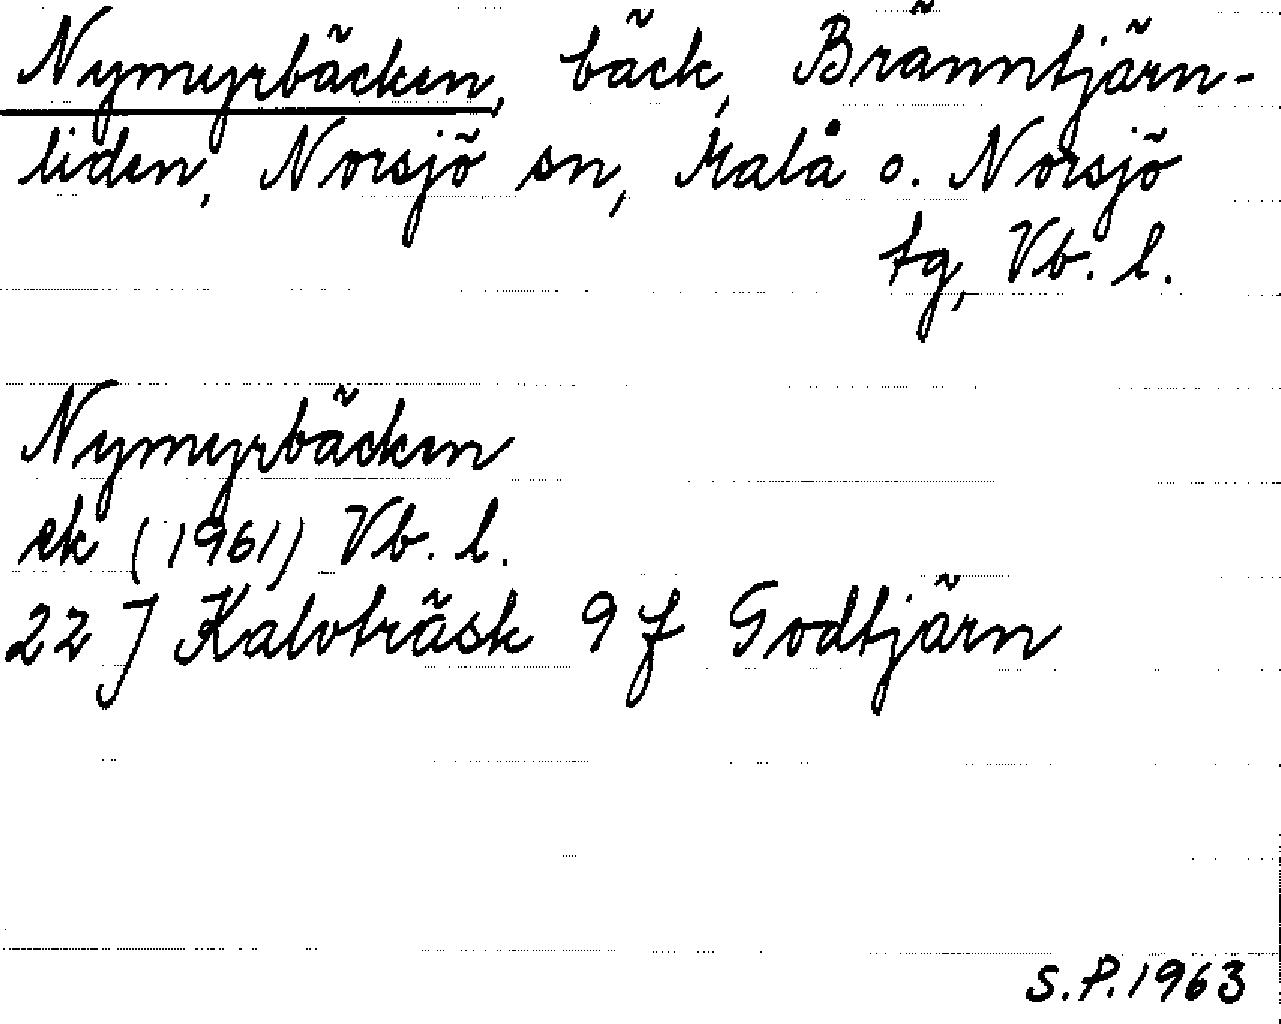 Nymyrbäcken, bäck, Bränntjärn-
liden, Norsjö sn, Malå o. Norsjö
tg, Vb. l.
Nymyrbäcken
ek (1961) Vb. l.
22 J Kalvträsk 9 f Godtjärn
S.P. 1963